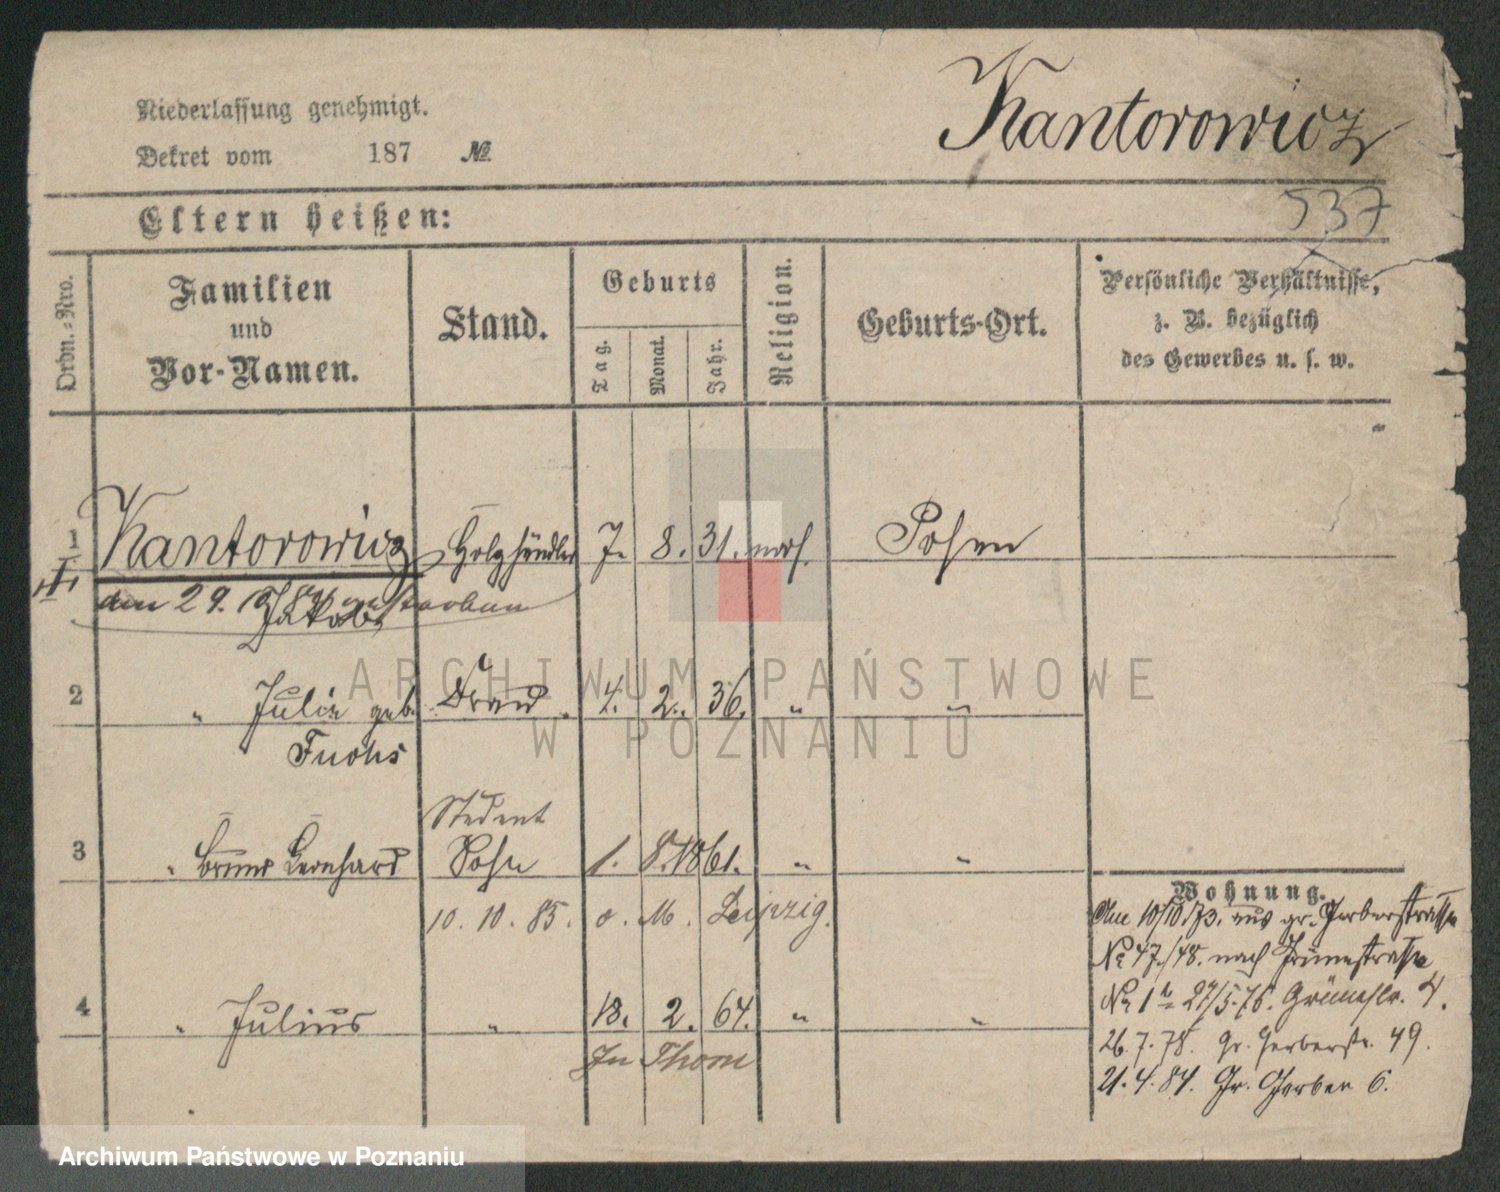 Niederlassung genehmigt.
Dekret vom 187 №
Kantorowicz
537
Eltern heißen:
Ordn.=Nro.
Familien
und
Vor-Namen.
Stand.
Geburts
Tag.
Monat.
Jahr.
Religion.
Geburts-Ort.
Persönliche Verhältnisse,
z. B. bezüglich
des Gewerbes u. s. w.
1 Kantorowicz Holzhändler 7. 8. 31. mos. Posen
den 29. gestorben
Jakob
2 " Julie geb. Frau 4. 2. 36. " "
Fuchs
Student
3 " Bruno Leonhard Sohn 1. 8. 1861. " "
10. 10. 85. a. M. Leipzig.
4 " Julius " 18. 2. 64. " "
In Thorn
Wohnung.
Am 10/10 73. aus gr. Gerberstrasse
No 47./48. nach Grünestrasse
No 1 27/5. 76. Grünestr. 4.
26. 7. 78. Gr. Gerberstr. 49.
21. 4. 84. Gr. Gerber 6.
ARCHIWUM PAŃSTWOWE
W POZNANIU
Archiwum Państwowe w Poznaniu